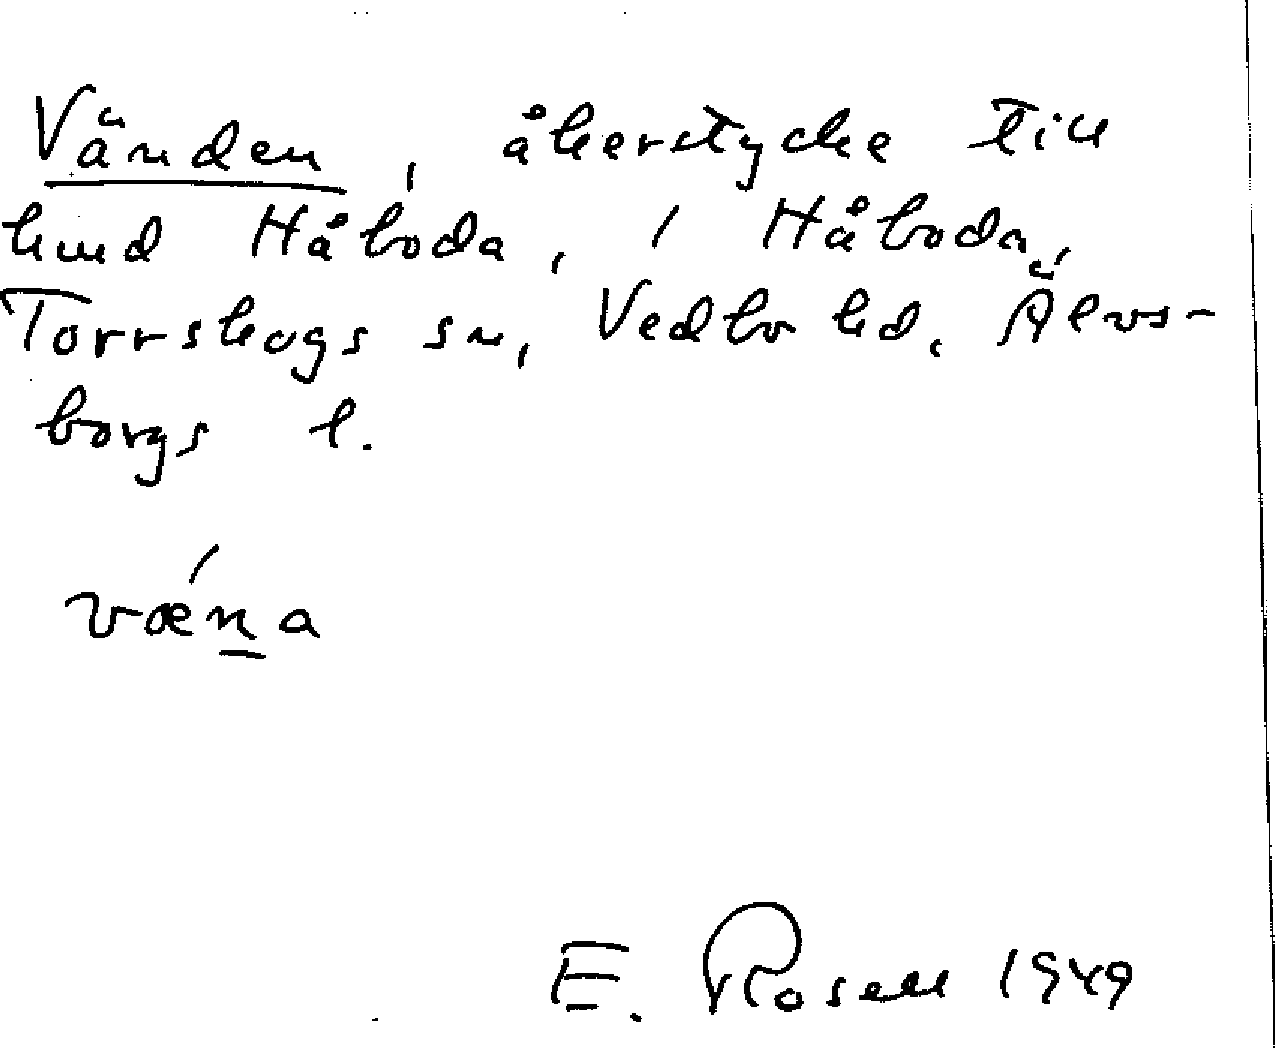 Vänden, åkerstycke till
lund Håboda, i Håboda,
Torrskogs sn, Vedbo hd. Älvs-
borgs l.
væna
E. Rosell 1949